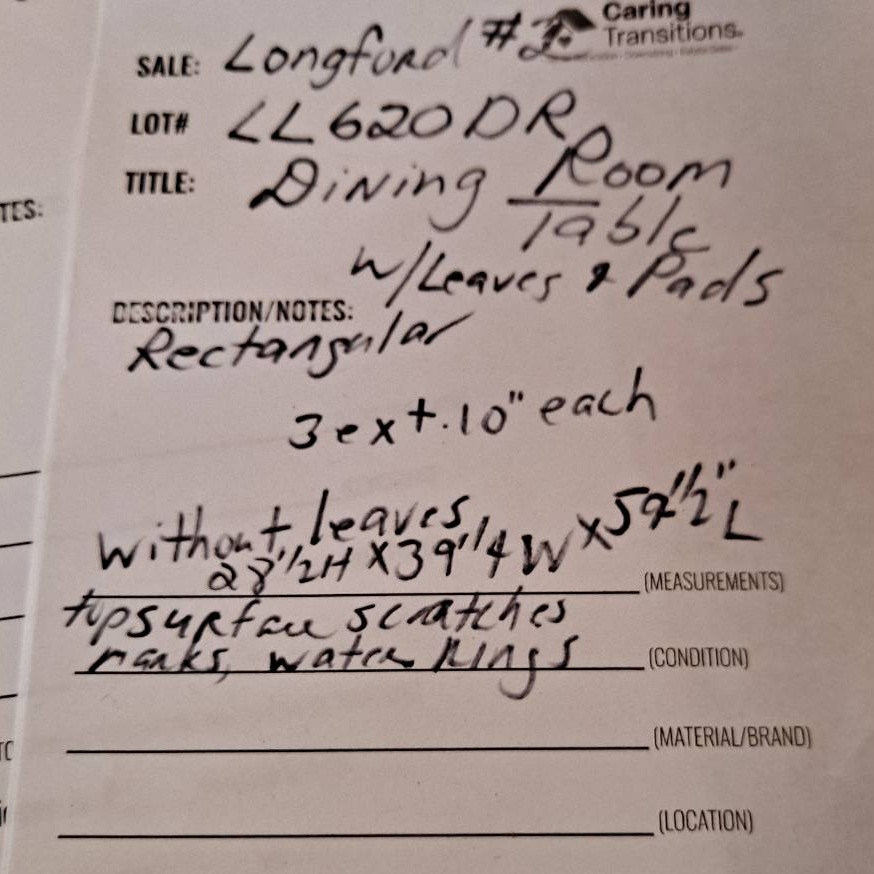 Caring
Transitions.
SALE: Longfurd #2
LOT# LL620DR
TITLE: Dining Room
Table
w/Leaves & Pads
TES:
DESCRIPTION/NOTES:
Rectangular
3 ext. 10" each
without leaves
28 1/2H X 39 1/4 W X 59 1/2" L
(MEASUREMENTS)
top surface scratches
marks, water rings
(CONDITION)
(MATERIAL/BRAND)
(LOCATION)